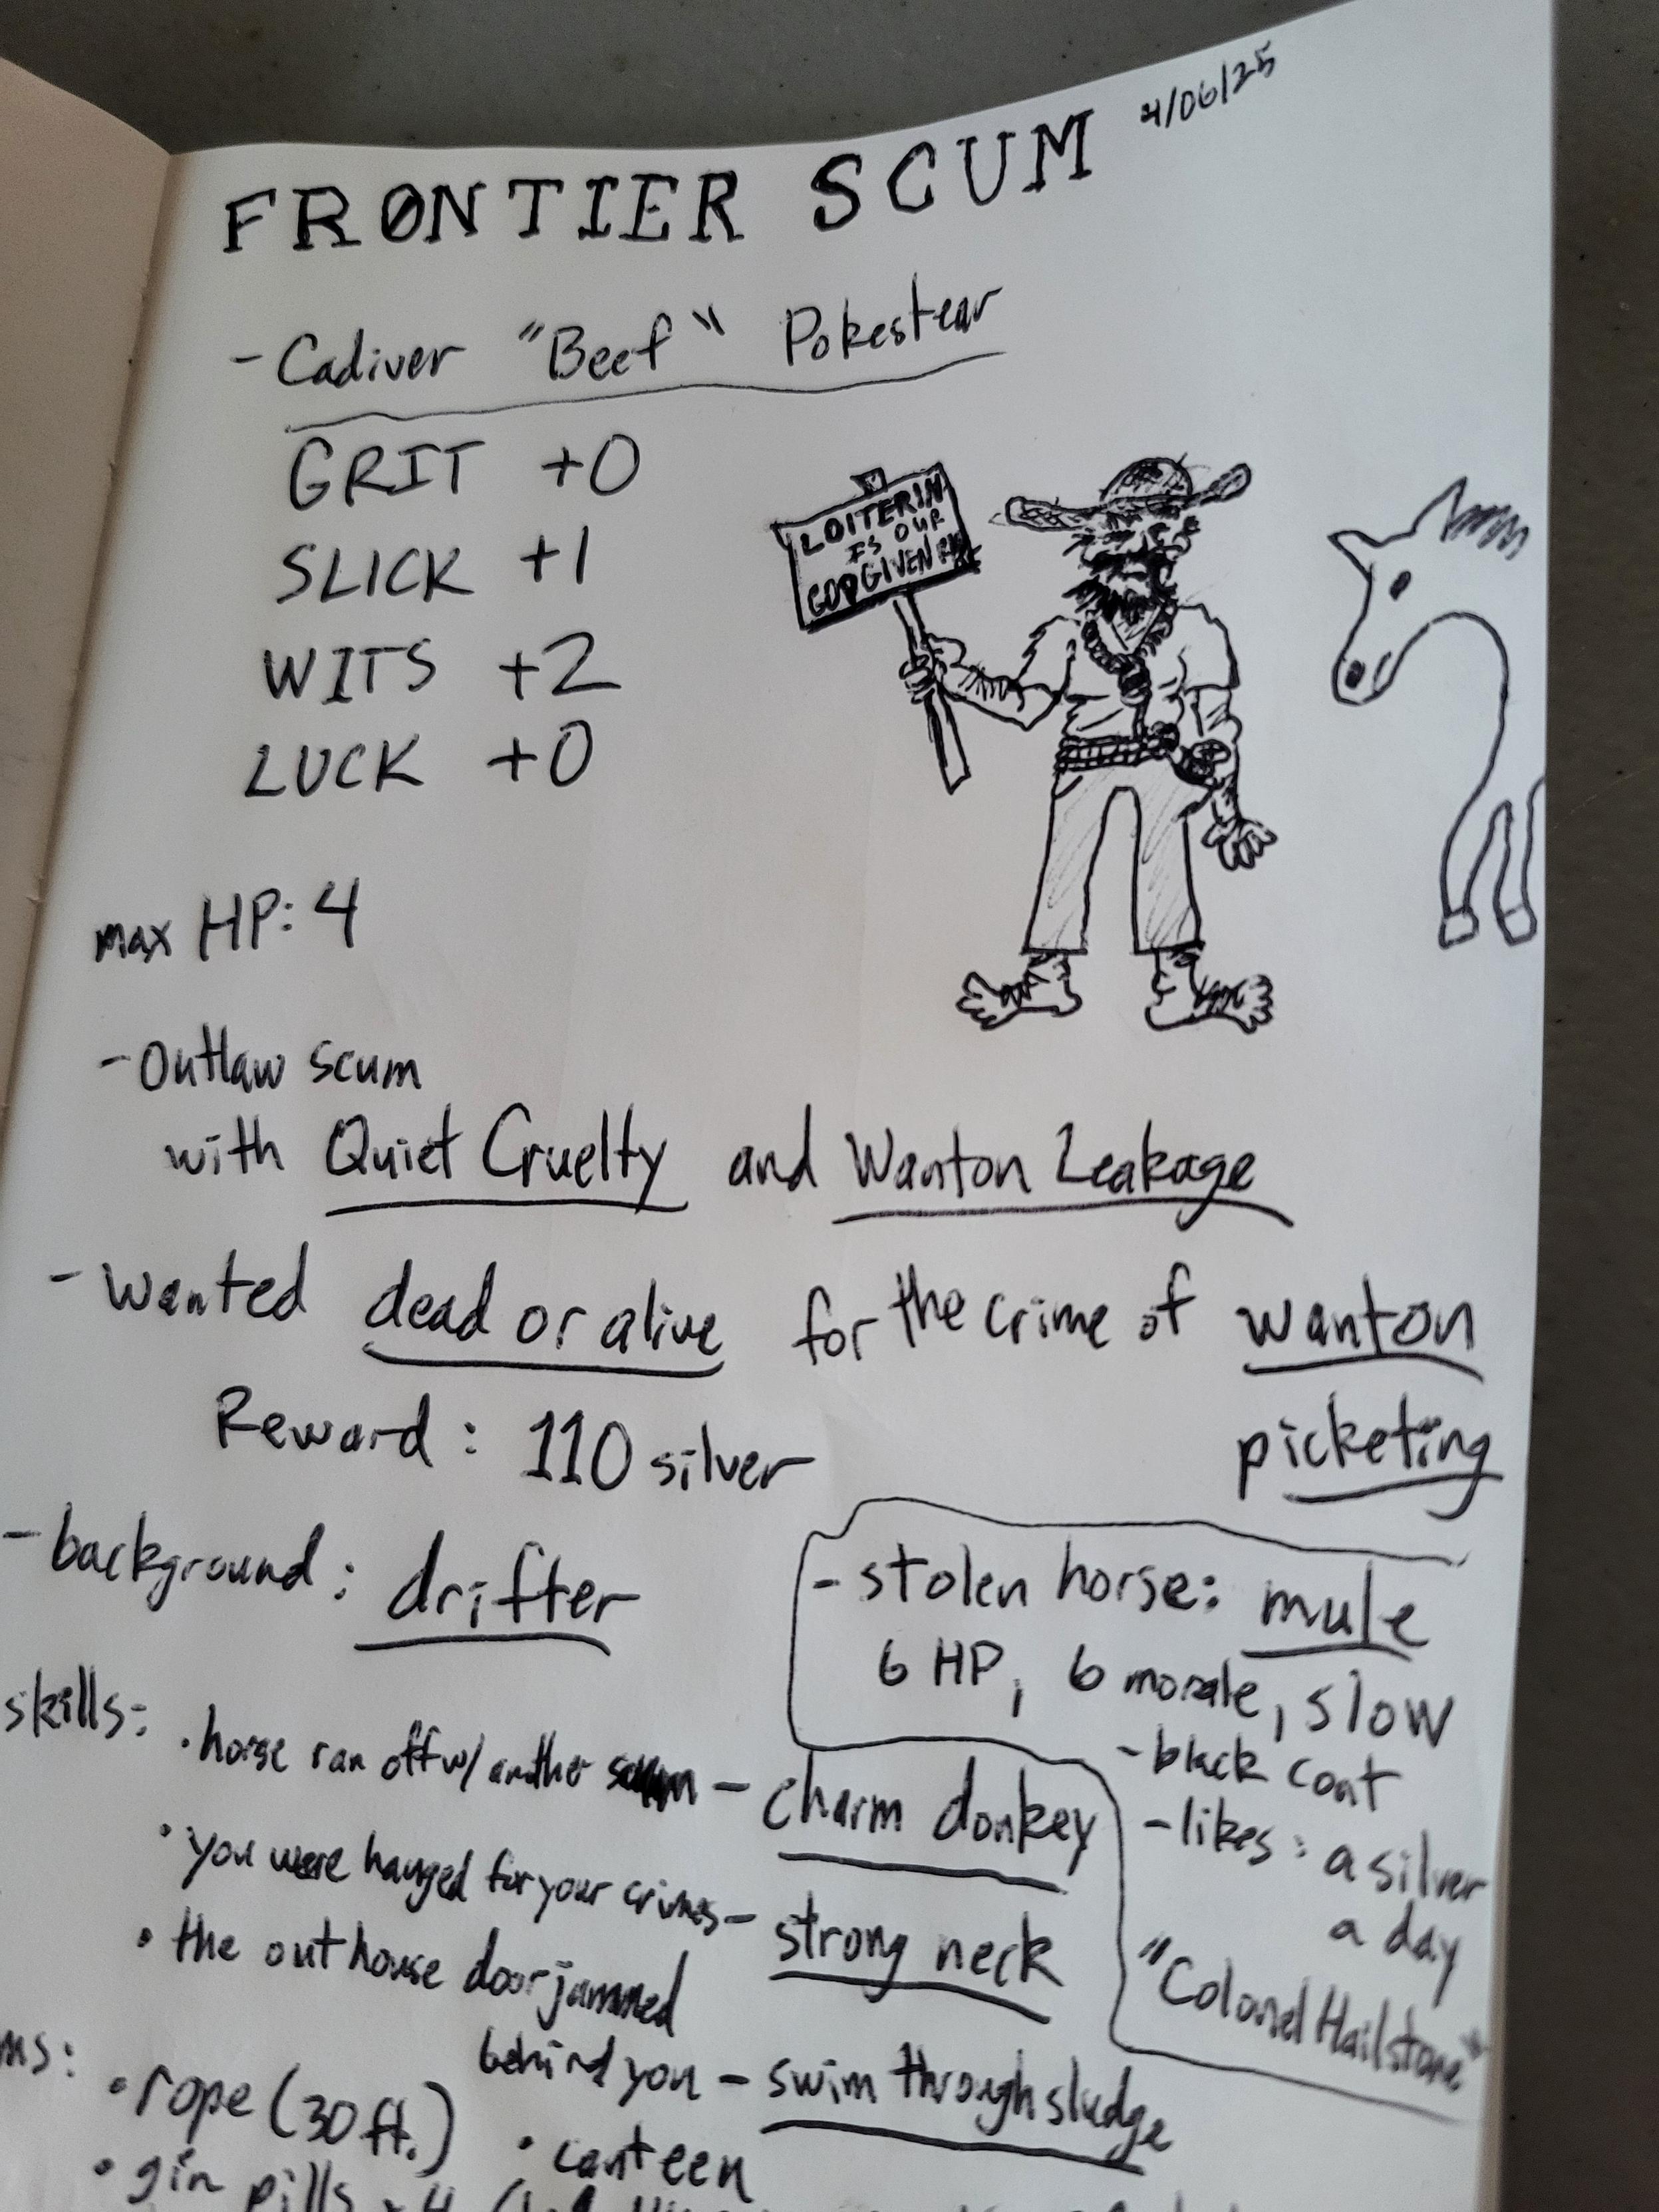 4/06/25
FRONTIER SCUM
- Cadiver "Beef" Pokestear
GRIT +0
SLICK +1
WITS +2
LUCK +0
LOITERIN
IS OUR
GOD GIVEN
max HP: 4
- Outlaw scum
with Quiet Cruelty and Wanton Leakage
- Wanted dead or alive for the crime of wanton
picketing
Reward: 110 silver
- background: drifter
- stolen horse: mule
6 HP, 6 morale, slow
- black coat
- likes: a silver
a day
"Colonel Hailstone"
skills:
• horse ran off w/ another scum - charm donkey
• you were hanged for your crimes - strong neck
• the outhouse door jammed
behind you - swim through sludge
ms:
• rope (30 ft.)
• canteen
• gin pills